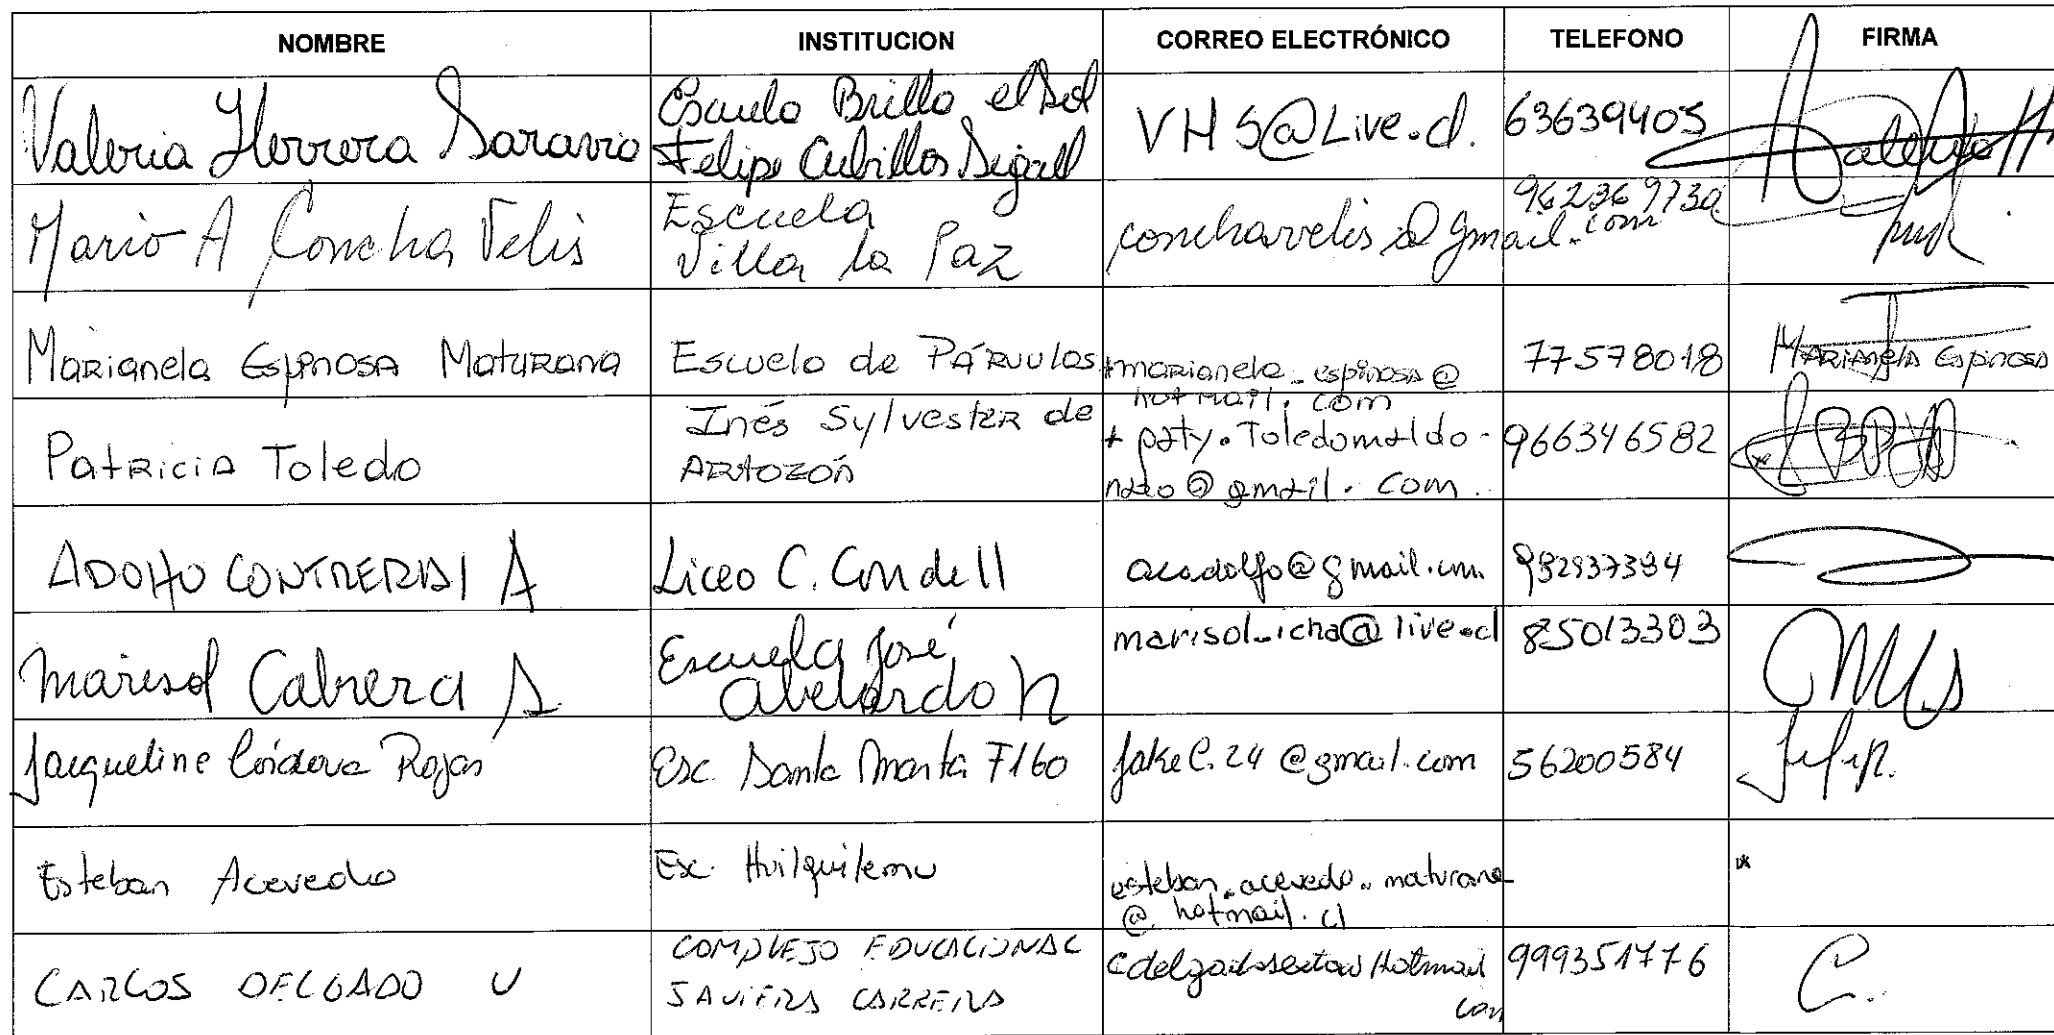 NOMBRE INSTITUCION CORREO ELECTRÓNICO TELEFONO FIRMA
Valeria Herrera Saravia
Escuela Brilla el Sol
Felipe Cubillos Sigall
VHS@Live.cl.
63639405
Mario A Concha Velis
Escuela
Villa la Paz
conchavelis@gmail.com
962369730
Marianela Espinosa Maturana
Escuela de Párvulos
marianela_espinosa@
hotmail.com
77578018
Marianela Espinosa
Patricia Toledo
Inés Sylvester de
Artozón
+ paty.Toledomaldo-
nado@gmail.com.
966346582
ADOLFO CONTRERAS A
Liceo C. Condell
acadolfo@gmail.com
982937394
Marisol Cabrera S
Escuela José
Abelardo N
marisol_icha@live.cl
85013303
Jacqueline Córdova Rojas
Esc. Santa Marta F160
JakeC.24@gmail.com
56200584
Esteban Acevedo
Esc. Huilquilemu
esteban.acevedo.maturana
@hotmail.cl
CARLOS DELGADO U
COMPLEJO EDUCACIONAL
JAVIERA CARRERA
Hotmail
com
999351776
C.